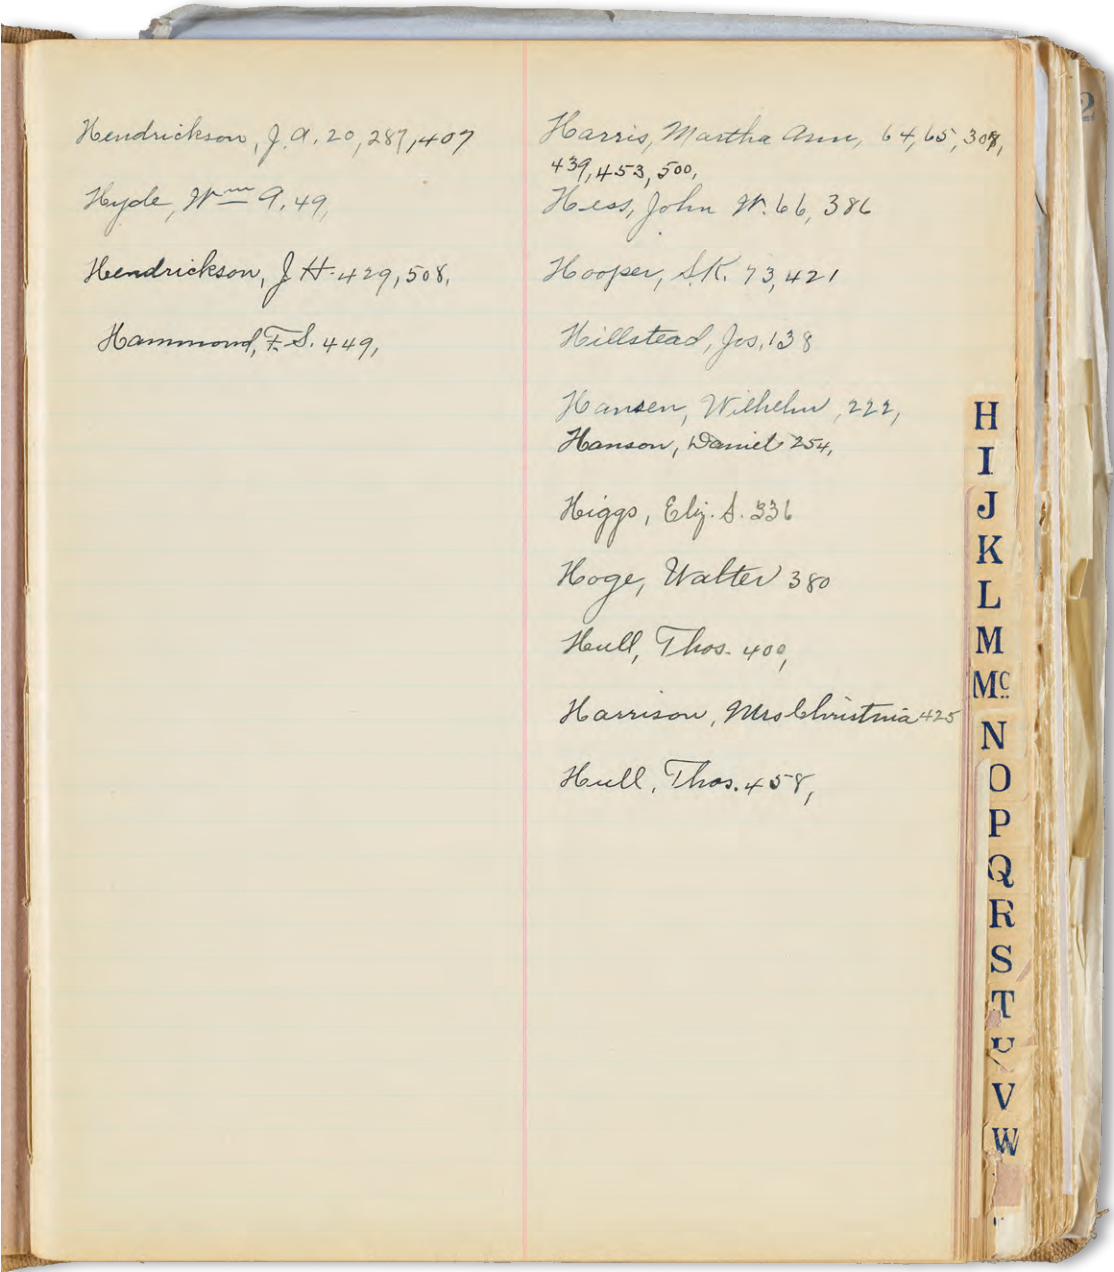 Hendrickson, J. A. 20, 287, 407
Hyde, Wm A. 49,
Hendrickson, J H. 429, 508,
Hammond, F. S. 449,
Harris, Martha Ann, 64, 65, 308,
439, 453, 500,
Hess, John W. 66, 386
Hooper, S.K. 73, 421
Hillstead, Jos. 138
Hansen, Wilhelm, 222,
Hanson, Daniel 254,
Higgs, Eliz. S. 336
Hoge, Walter 380
Hull, Thos. 400,
Harrison, Mrs Christina 425
Hull, Thos. 458,
H
I
J
K
L
M
Mc
N
O
P
Q
R
S
T
U
V
W
2